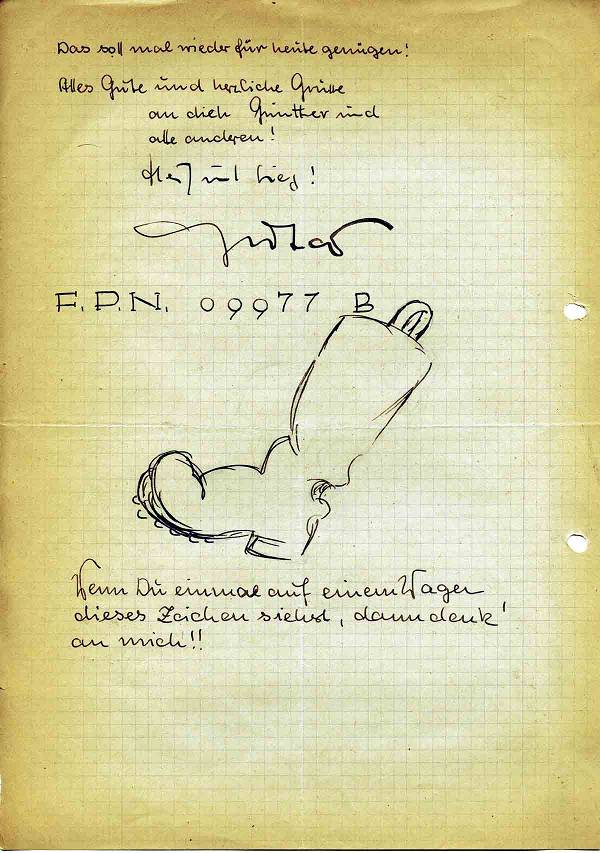 Das soll mal wieder für heute genügen!
Alles Gute und herzliche Grüsse
an dich Günther und
alle anderen!
Heil und Sieg!
F.P.N. 09977 B
Wenn Du einmal auf einem Wagen
dieses Zeichen siehst, dann denk'
an mich!!